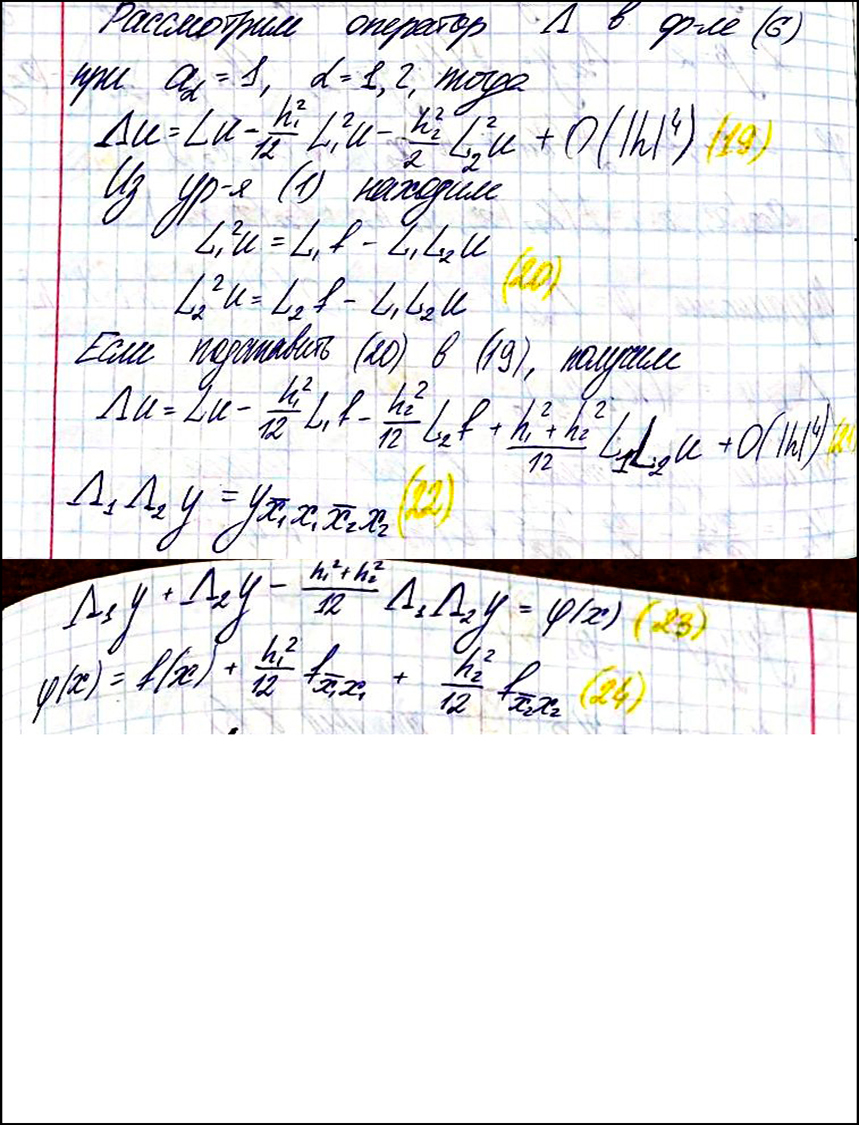 Рассмотрим оператор Λ в ф-ле (6)
при a_α = 1, α = 1, 2, тогда
Λu = Lu - h₁²/12 L₁²u - h₂²/2 L₂²u + O(|h|⁴) (19)
Из ур-я (1) находим
L₁²u = L₁f - L₁L₂u
L₂²u = L₂f - L₁L₂u (20)
Если подставить (20) в (19), получим
Λu = Lu - h₁²/12 L₁f - h₂²/12 L₂f + (h₁² + h₂²)/12 L₁L₂u + O(|h|⁴) (21
Λ₁Λ₂y = y_{x̄₁x₁x̄₂x₂} (22)
Λ₁y + Λ₂y - (h₁² + h₂²)/12 Λ₁Λ₂y = φ(x) (23)
φ(x) = f(x) + h₁²/12 f_{x̄₁x₁} + h₂²/12 f_{x̄₂x₂} (24)